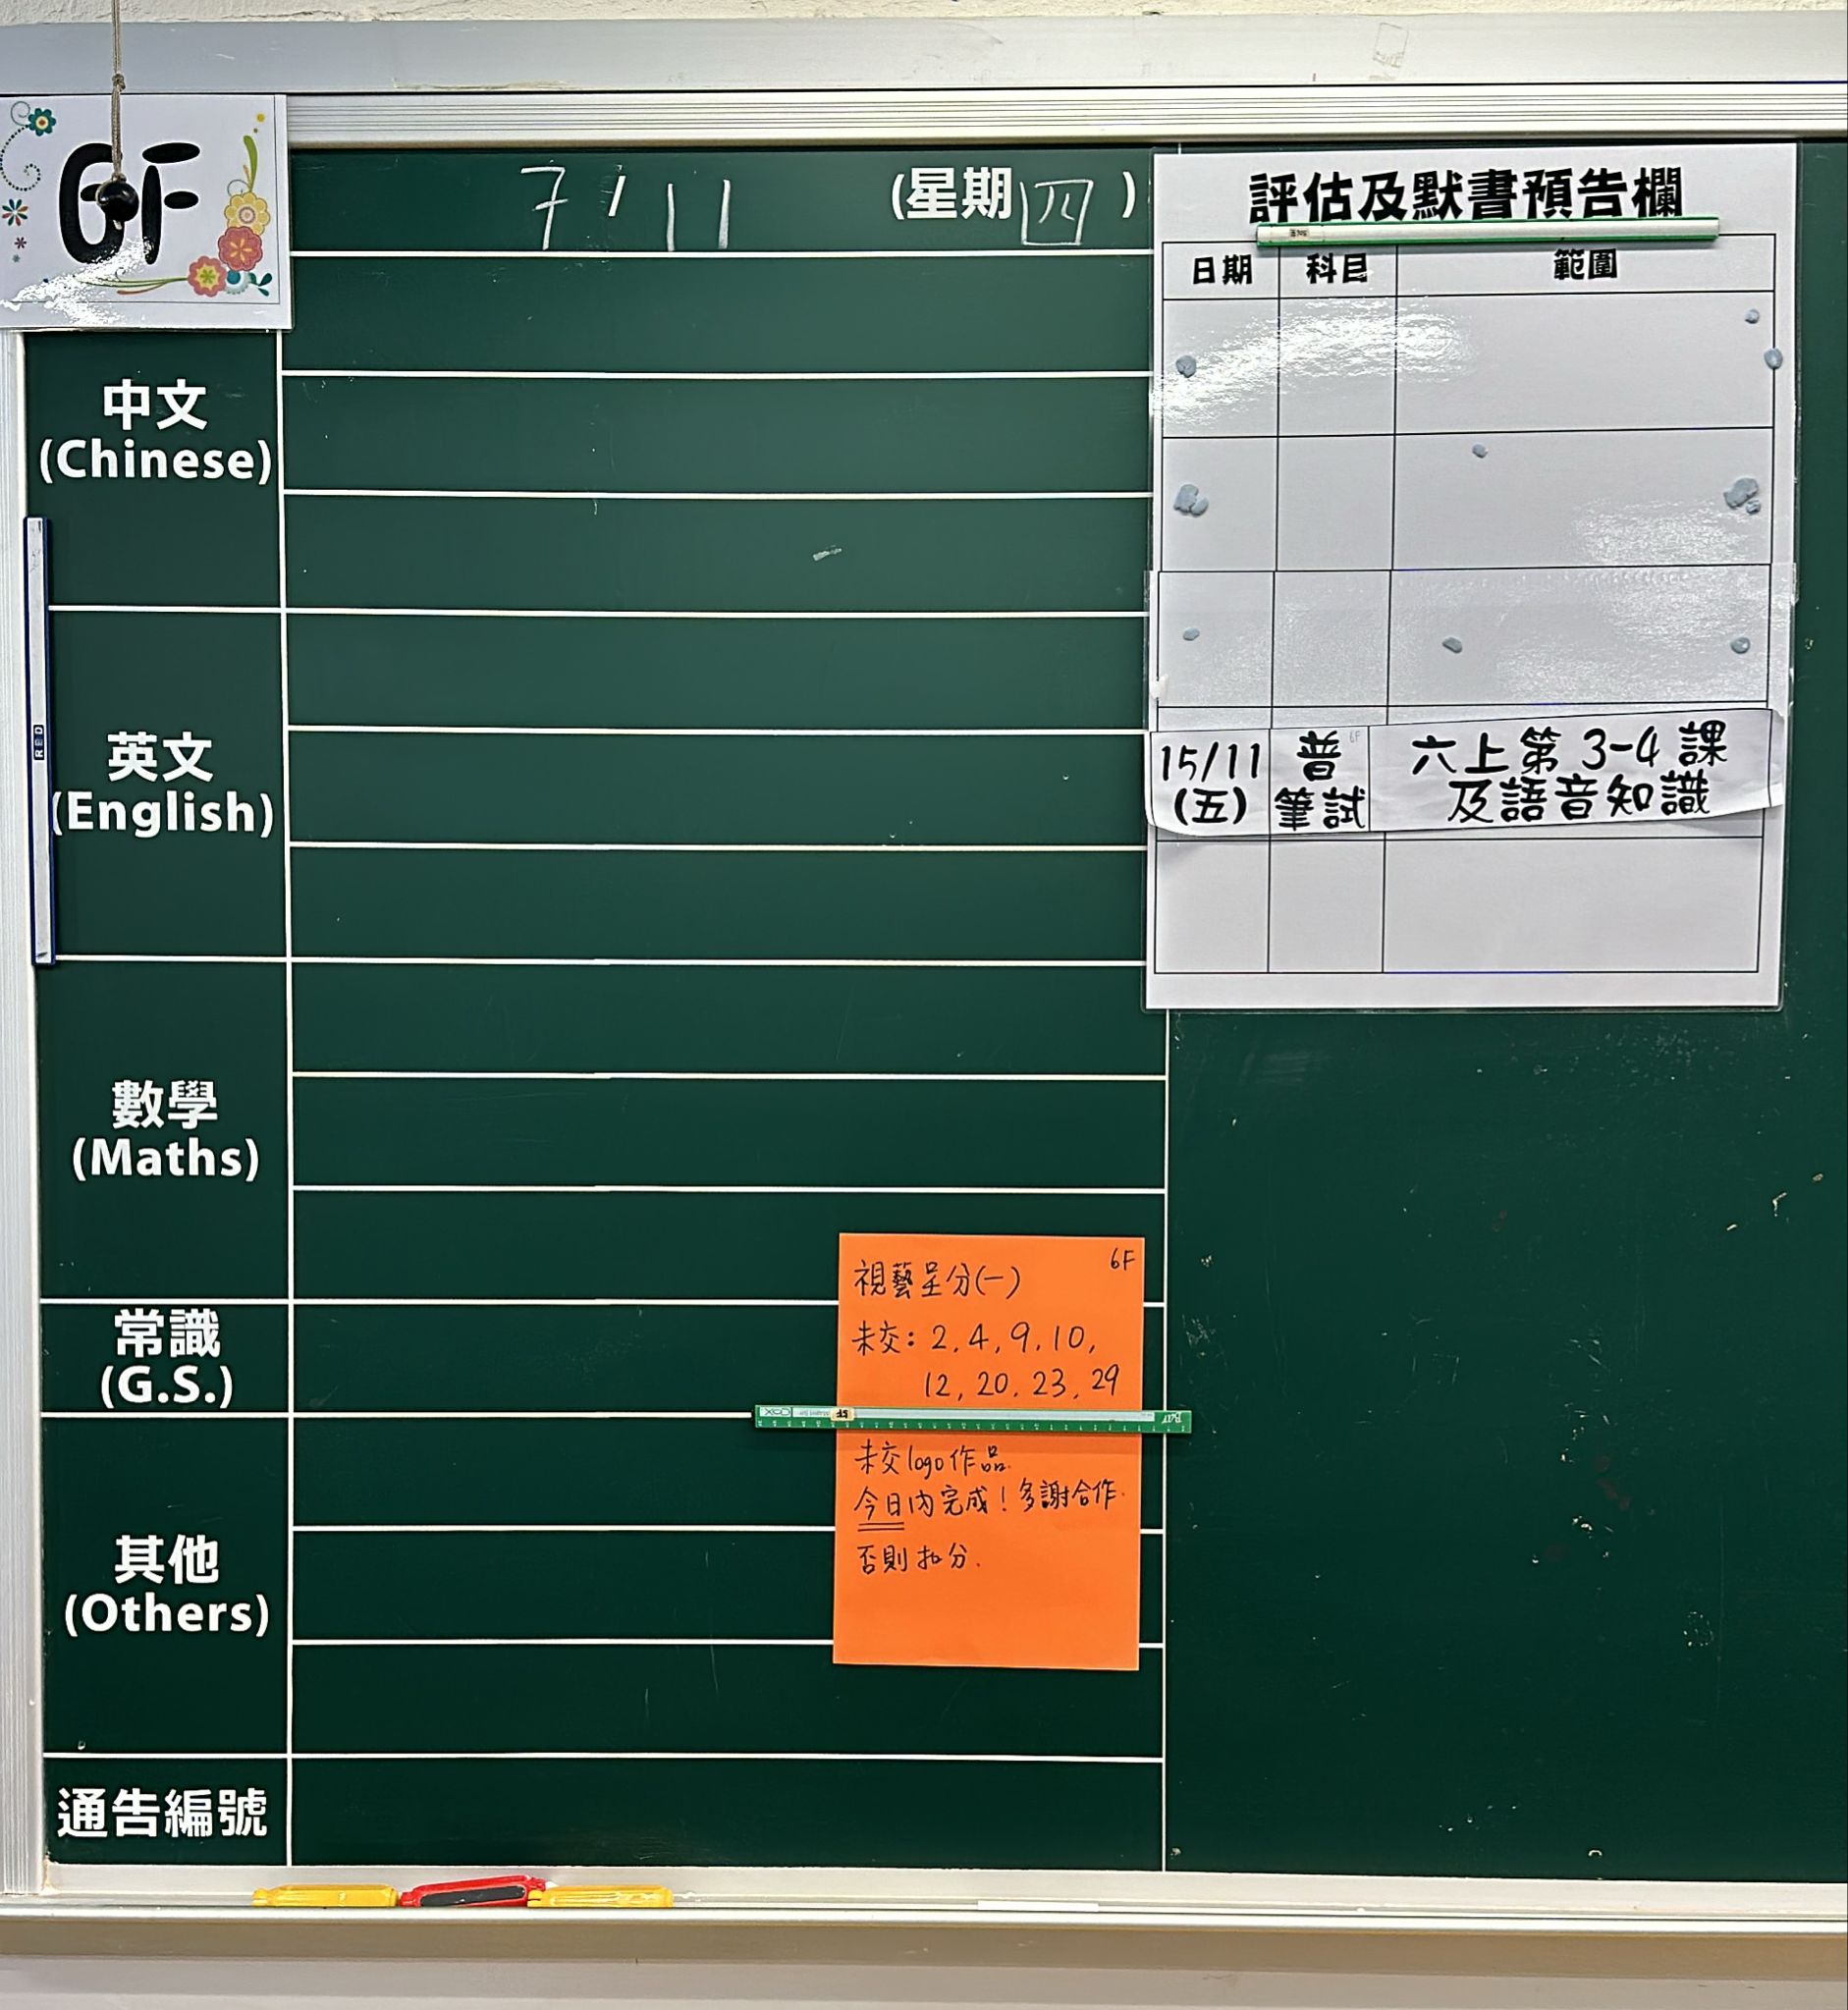 6F
7/11 (星期四)
中文
(Chinese)
英文
(English)
數學
(Maths)
常識
(G.S.)
其他
(Others)
通告編號
RED
評估及默書預告欄
日期 科目 範圍
15/11 普 六上第3-4課
(五) 筆試 及語音知識
6F
6F
視藝呈分(一)
未交: 2, 4, 9, 10,
12, 20, 23, 29
未交logo作品.
今日內完成! 多謝合作.
否則扣分.